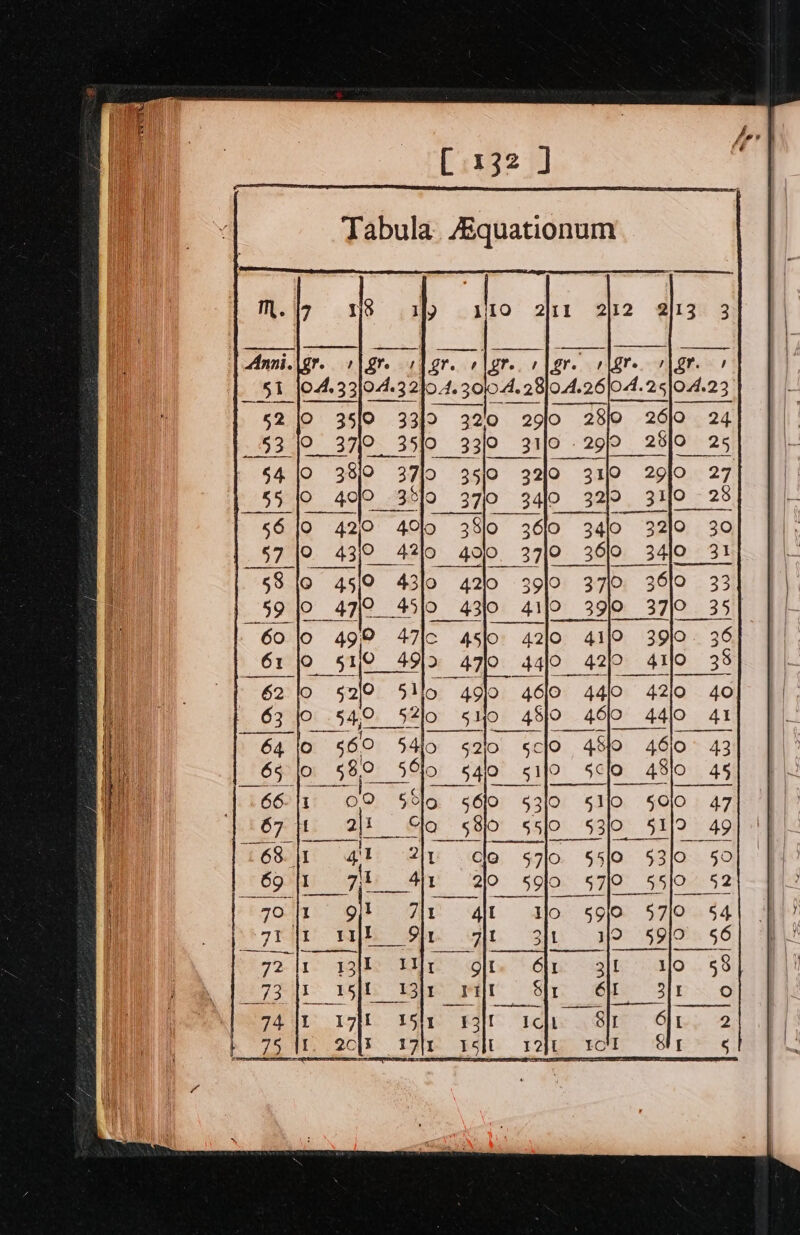 [ 132 ]
Tabula Æquationum
M. 7 1 8 1 9 1 10 2 11 2 12 2 13 3
Anni. gr. ′ gr. ′ gr. ′ gr. ′ gr. ′ gr. ′ gr. ′
51 0A.33 0A.32 0A.30 0A.28 0A.26 0A.25 0A.23
52 0 35 0 33 0 32 0 29 0 28 0 26 0 24
53 0 37 0 35 0 33 0 31 0 29 0 28 0 25
54 0 38 0 37 0 35 0 32 0 31 0 29 0 27
55 0 40 0 38 0 37 0 34 0 32 0 31 0 28
56 0 42 0 40 0 38 0 36 0 34 0 32 0 30
57 0 43 0 42 0 40 0 37 0 36 0 34 0 31
58 0 45 0 43 0 42 0 39 0 37 0 36 0 33
59 0 47 0 45 0 43 0 41 0 39 0 37 0 35
60 0 49 0 47 0 45 0 42 0 41 0 39 0 36
61 0 51 0 49 0 47 0 44 0 42 0 41 0 38
62 0 52 0 51 0 49 0 46 0 44 0 42 0 40
63 0 54 0 52 0 51 0 48 0 46 0 44 0 41
64 0 56 0 54 0 52 0 50 0 48 0 46 0 43
65 0 58 0 56 0 54 0 51 0 50 0 48 0 45
66 1 0 0 58 0 56 0 53 0 51 0 50 0 47
67 1 2 1 0 0 58 0 55 0 53 0 51 0 49
68 1 4 1 2 1 0 0 57 0 55 0 53 0 50
69 1 7 1 4 1 2 0 59 0 57 0 55 0 52
70 1 9 1 7 1 4 1 1 0 59 0 57 0 54
71 1 11 1 9 1 7 1 3 1 1 0 59 0 56
72 1 13 1 11 1 9 1 6 1 3 1 1 0 58
73 1 15 1 13 1 11 1 8 1 6 1 3 1 0
74 1 17 1 15 1 13 1 10 1 8 1 6 1 2
75 1 20 1 17 1 15 1 12 1 10 1 8 1 5